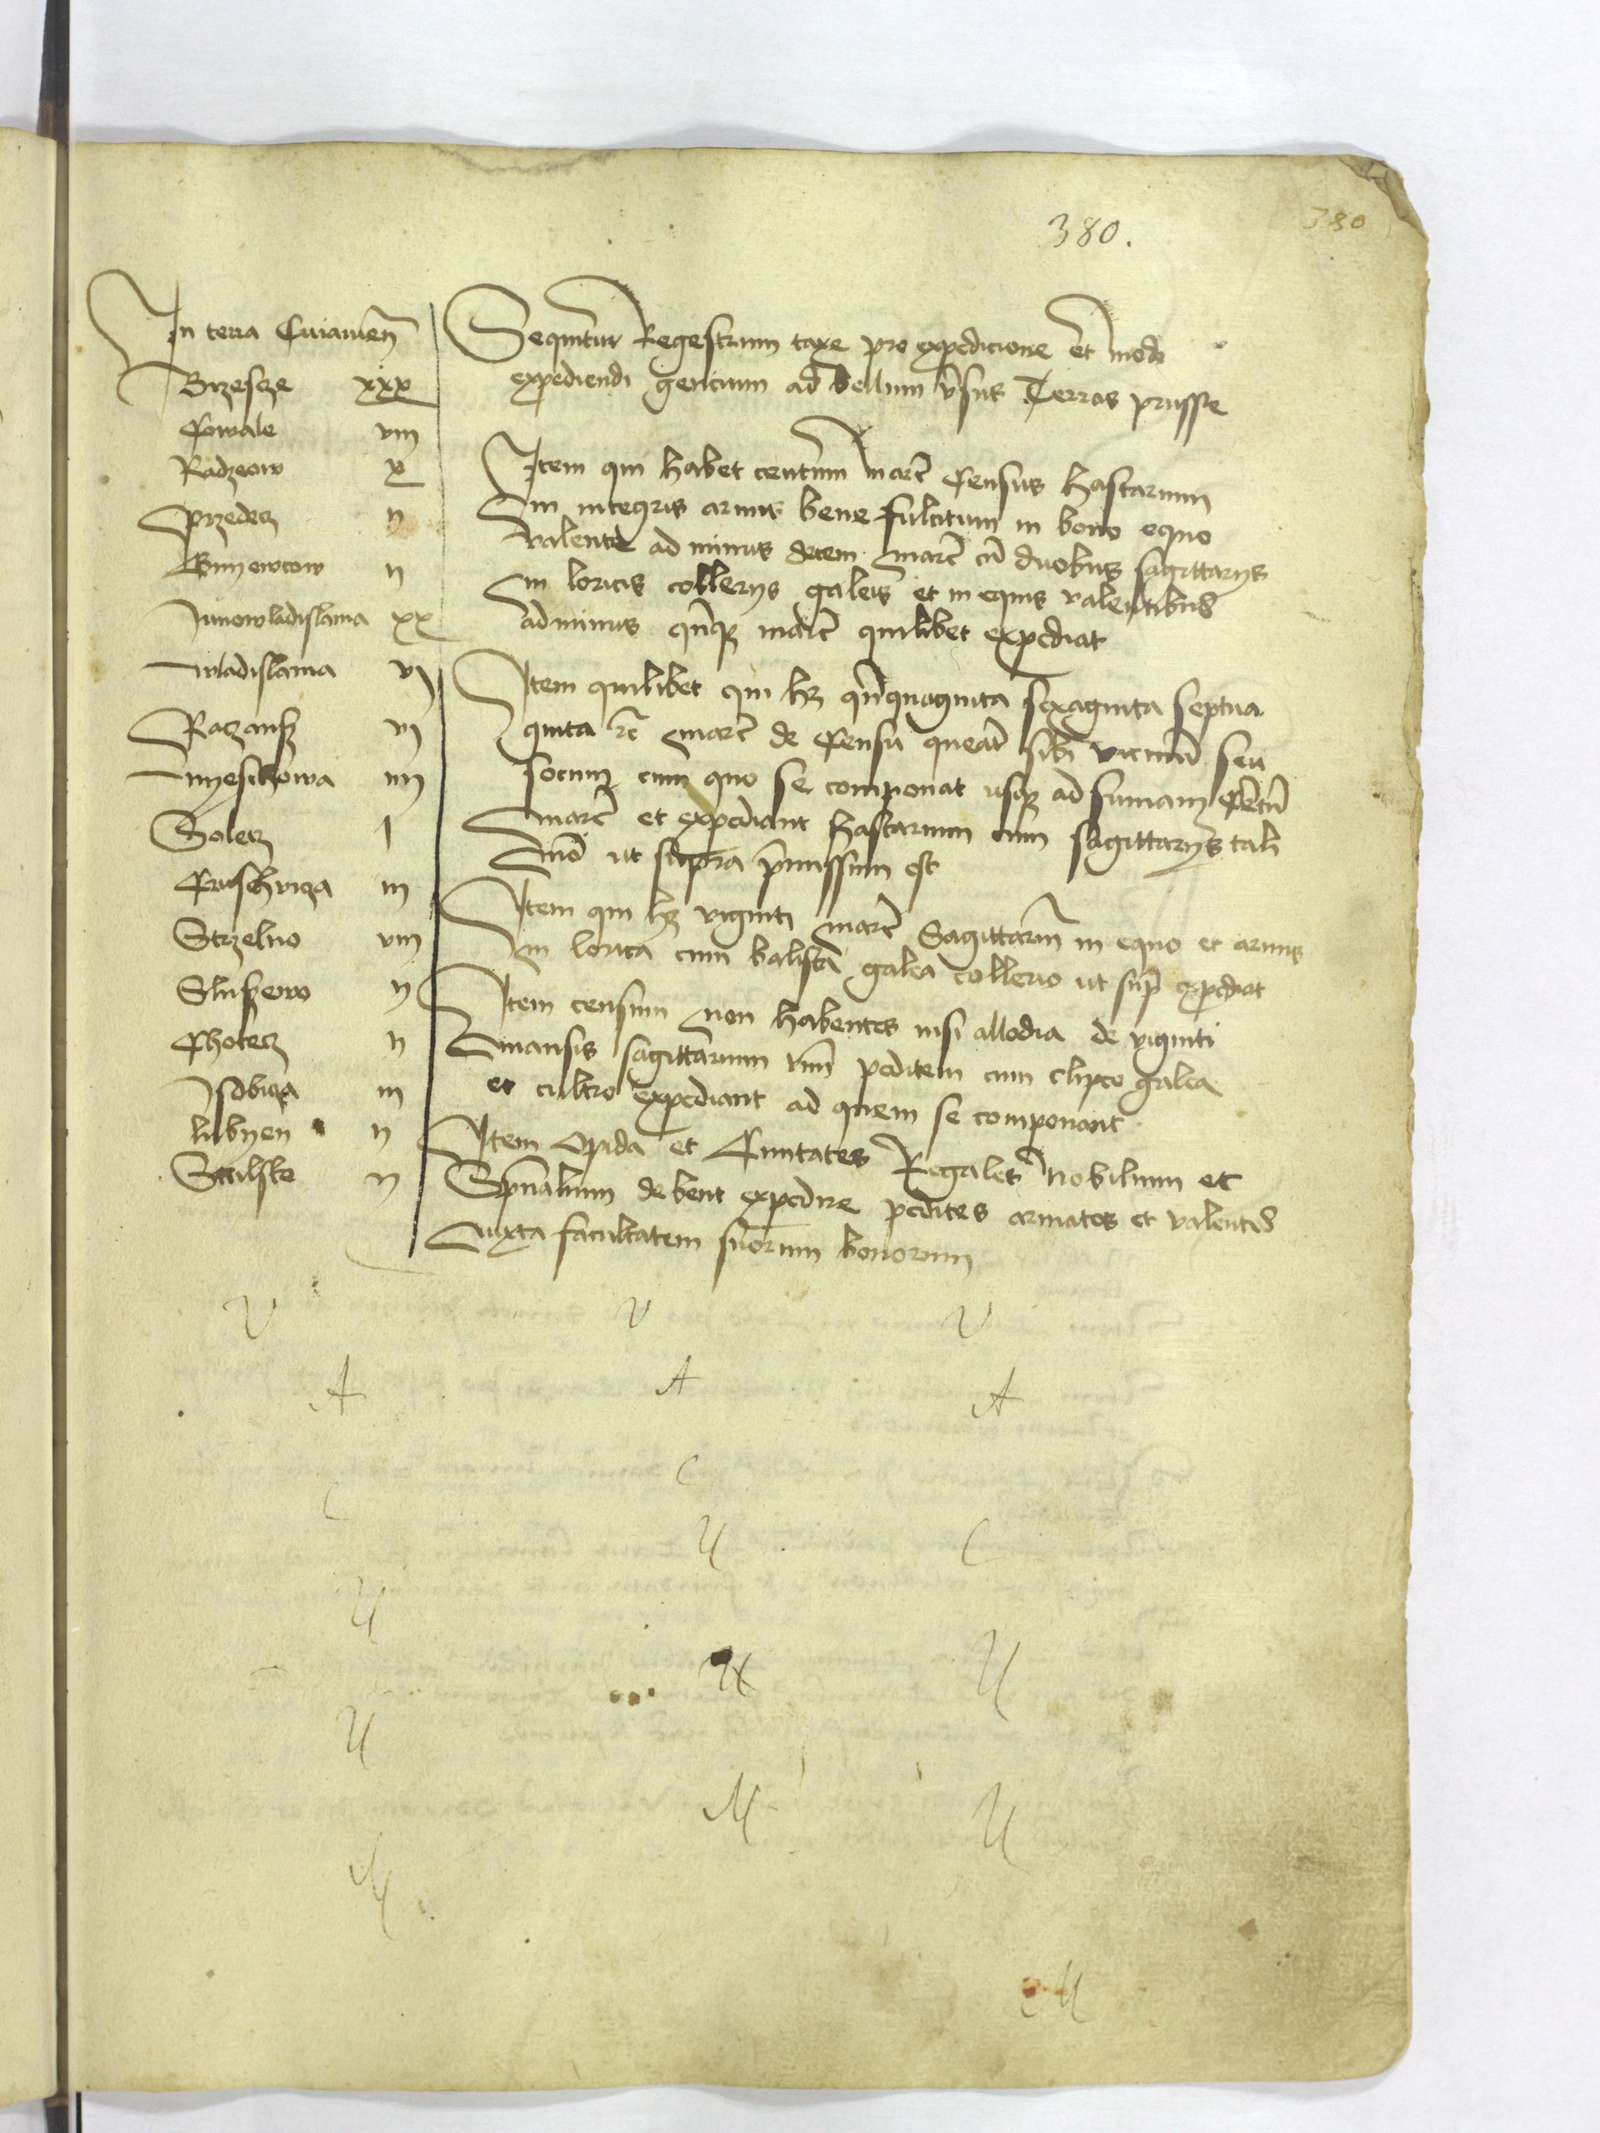 380.
380
In terra Cuiauien̄
Brzescze xxx
Cowale viii
Radzeow x
Przedecz ii
Bnyewcow ii
Junowladislauia xx
wladislauia vi
Raczansz vi
nyeschowa iiii
Solecz i
Cruschvicza iii
Strzelno viii
Sluszewo ii
Chotecz ii
Isdbicza iii
lubyen ii
ii
Sequitur Regestrum taxe pro expedicione et modo
expediendi gencium ad bellum v̄sus Terras prussie
Item qui habet centum marc̄ Census hastarium
in integris armis bene fulcitum in bono equo
valente ad minus decem marc̄ cū duobus sagittariis
in loricis colleriis galeis et in equis valentibus
adminus q̄nqꝫ marc̄ quilibet expediat
Item quilibet qui hꝫ q̄nquaginta sexaginta septua
ginta etc̄ marc̄ de Censu querat sibi vicinū seu
socium cum quo se componat usqꝫ ad sumam Centū
marc̄ et expediant hastarium cum sagittariis tali
mō ut supra p̄missum est
Item qui hꝫ viginti marc̄ Sagittariū in equo et armis
in lorica cum balista galea collerio ut sup̄ expediat
Item censum non habentes nisi allodia de viginti
mansis sagittarium vnū peditem cum clipeo galea
et cultro expediant ad quem se componant
Item Opida et Ciuitates Regales Nobilium et
Sp̄ualium debent expedire pedites armatos et valentes
iuxta facultatem suorum bonorum
V V V
A A A
C C C
U U U
U U U
M M M